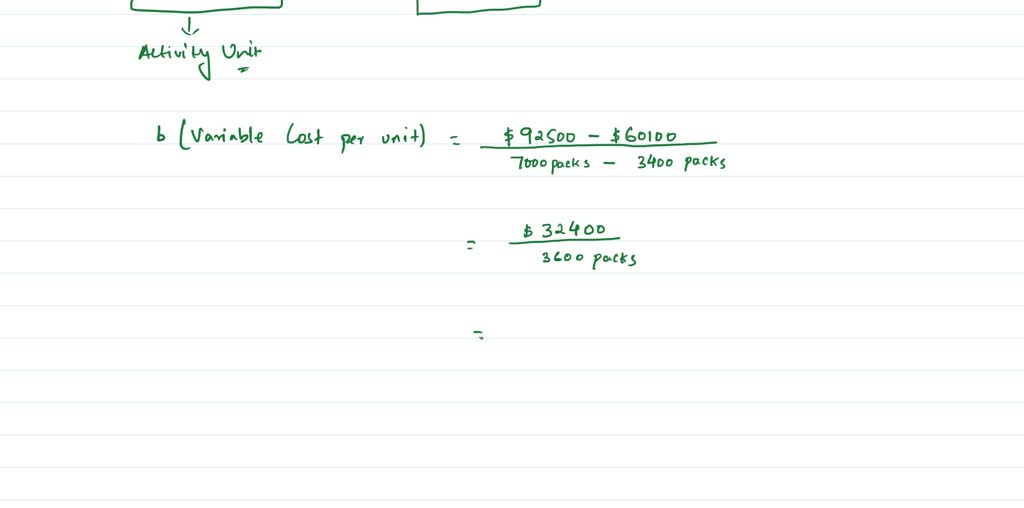 Activity Unit
b (Variable Cost per unit) = $92500 - $60100
7000 packs - 3400 packs
= $32400
3600 packs
=